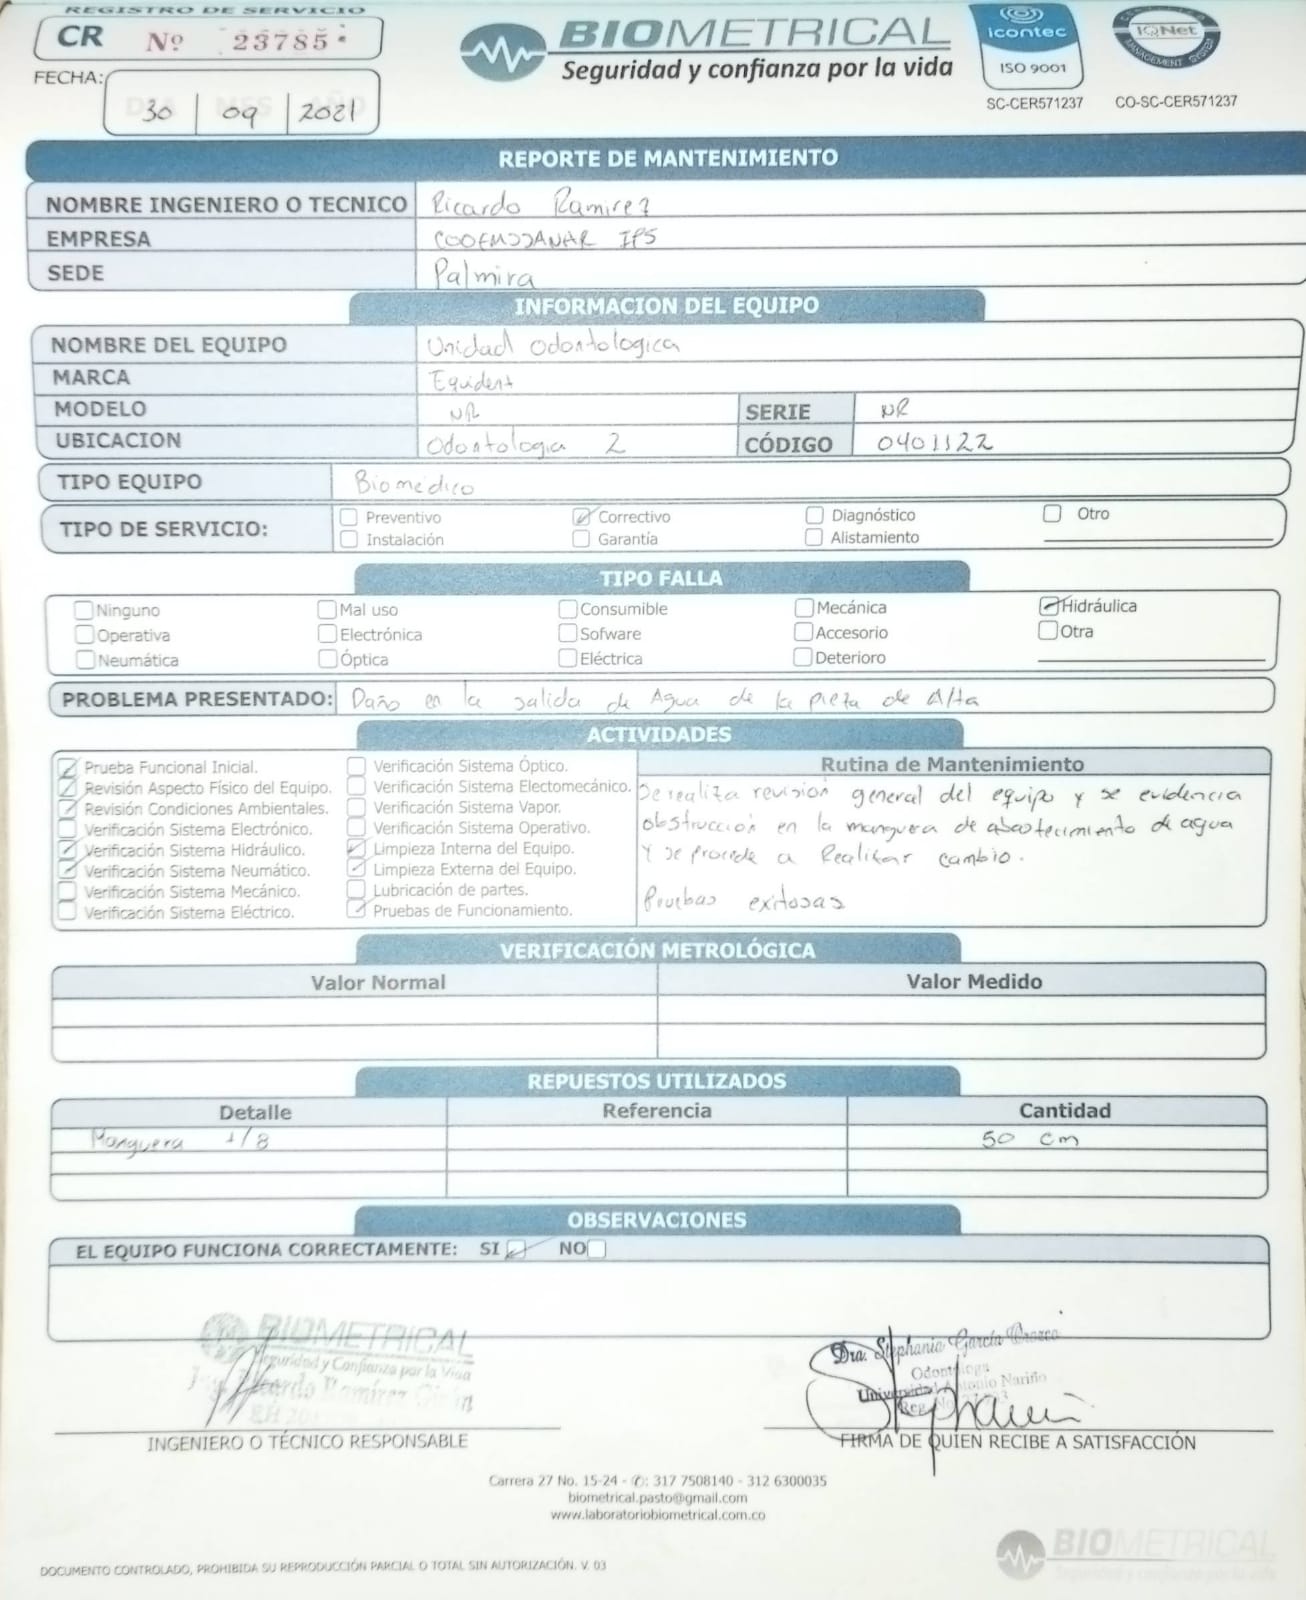 REGISTRO DE SERVICIO
CR Nº 23785
FECHA:
DIA MES AÑO
30 09 2021
BIOMETRICAL
Seguridad y confianza por la vida
icontec
ISO 9001
SC-CER571237
IQNet
MANAGEMENT SYSTEM
CO-SC-CER571237
REPORTE DE MANTENIMIENTO
NOMBRE INGENIERO O TECNICO Ricardo Ramirez
EMPRESA IPS
SEDE Palmira
INFORMACION DEL EQUIPO
NOMBRE DEL EQUIPO Unidad Odontologica
MARCA Equident
MODELO NR SERIE NR
UBICACION Odontologia 2 CÓDIGO 0401122
TIPO EQUIPO Biomédico
TIPO DE SERVICIO: Preventivo Correctivo Diagnóstico Otro
Instalación Garantía Alistamiento
TIPO FALLA
Ninguno Mal uso Consumible Mecánica Hidráulica
Operativa Electrónica Sofware Accesorio Otra
Neumática Óptica Eléctrica Deterioro
PROBLEMA PRESENTADO: Daño en la salida de Agua de la pieza de Alta
ACTIVIDADES
Prueba Funcional Inicial.
Revisión Aspecto Físico del Equipo.
Revisión Condiciones Ambientales.
Verificación Sistema Electrónico.
Verificación Sistema Hidráulico.
Verificación Sistema Neumático.
Verificación Sistema Mecánico.
Verificación Sistema Eléctrico.
Verificación Sistema Óptico.
Verificación Sistema Electomecánico.
Verificación Sistema Vapor.
Verificación Sistema Operativo.
Limpieza Interna del Equipo.
Limpieza Externa del Equipo.
Lubricación de partes.
Pruebas de Funcionamiento.
Rutina de Mantenimiento
Se realiza revisión general del equipo y se evidencia
obstrucción en la manguera de abastecimiento de agua
Y se procede a Realizar cambio.
Pruebas exitosas
VERIFICACIÓN METROLÓGICA
Valor Normal Valor Medido
REPUESTOS UTILIZADOS
Detalle Referencia Cantidad
Manguera 1/8 50 cm
OBSERVACIONES
EL EQUIPO FUNCIONA CORRECTAMENTE: SI NO
BIOMETRICAL
Seguridad y Confianza por la Vida
Ing. Ricardo Ramírez
Dra. Stephania García Orozco
Odontóloga
Universidad Antonio Nariño
Reg. No.
INGENIERO O TÉCNICO RESPONSABLE
FIRMA DE QUIEN RECIBE A SATISFACCIÓN
Carrera 27 No. 15-24 - ✆: 317 7508140 - 312 6300035
biometrical.pasto@gmail.com
www.laboratoriobiometrical.com.co
BIOMETRICAL
Seguridad y confianza por la vida
DOCUMENTO CONTROLADO, PROHIBIDA SU REPRODUCCIÓN PARCIAL O TOTAL SIN AUTORIZACIÓN. V. 03